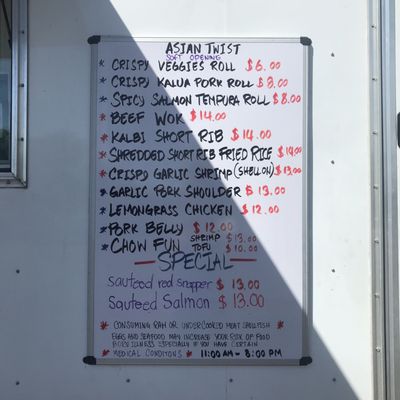 ASIAN TWIST
SOFT OPENING
* CRISPY VEGGIES ROLL $6.00
* CRISPY KALUA PORK ROLL $8.00
* SPICY SALMON TEMPURA ROLL $8.00
* BEEF WOK $14.00
* KALBI SHORT RIB $14.00
* SHREDDED SHORT RIB FRIED RICE $14.00
* CRISPY GARLIC SHRIMP (SHELL ON) $13.00
* GARLIC PORK SHOULDER $13.00
* LEMONGRASS CHICKEN $12.00
* PORK BELLY $12.00
* CHOW FUN SHRIMP $13.00
TOFU $10.00
— SPECIAL —
Sauteed red snapper $13.00
Sauteed Salmon $13.00
* CONSUMING RAW OR UNDERCOOKED MEAT SHELLFISH *
EGGS AND SEAFOOD MAY INCREASE YOUR RISK OF FOOD
BORN ILLNESS ESPECIALLY IF YOU HAVE CERTAIN
* MEDICAL CONDITIONS * 11:00 AM - 8:00 PM